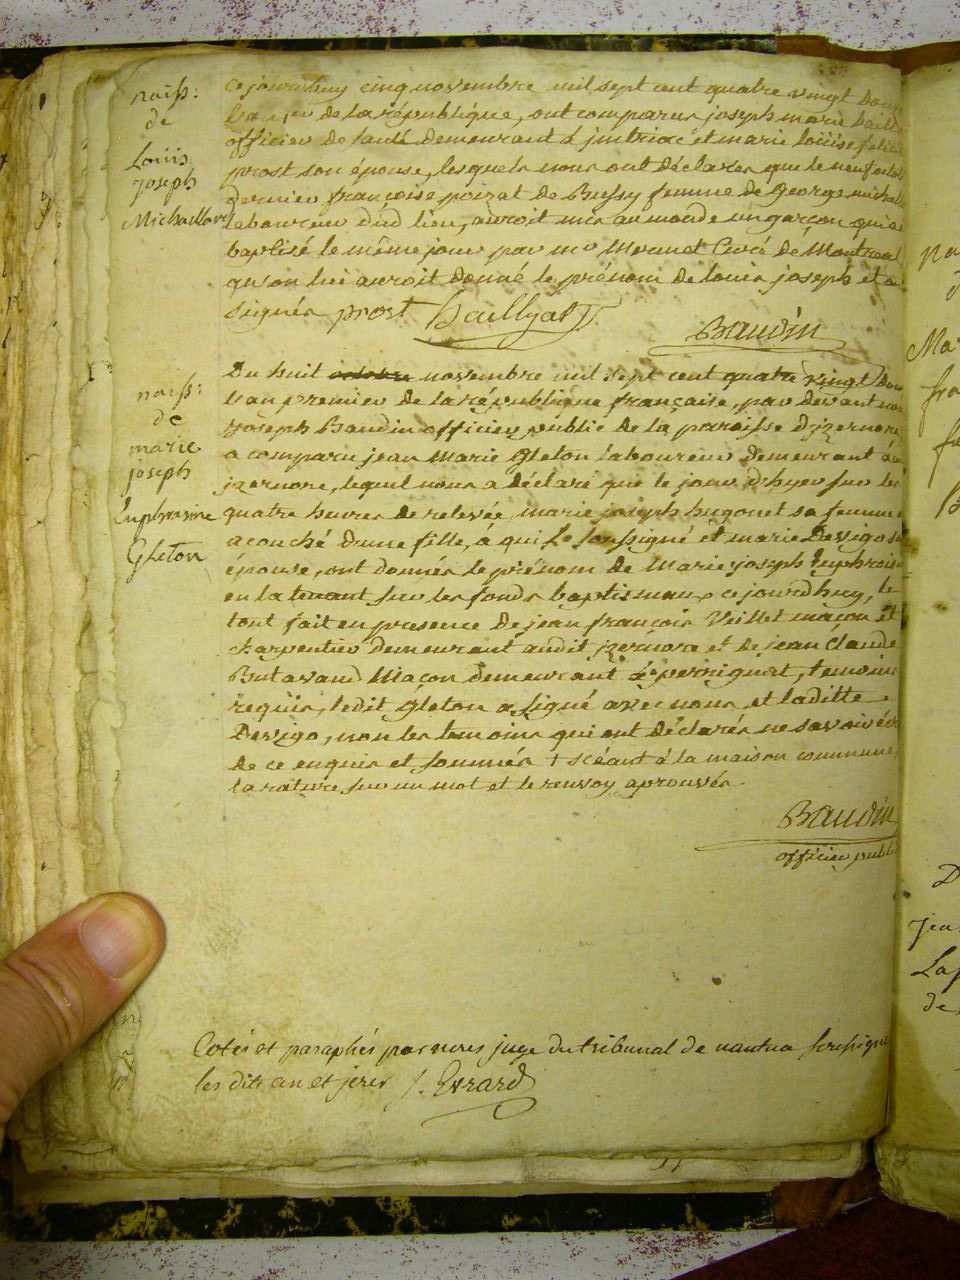 naiss:
de
Louis
joseph
Michaillard
ce jourdhuy cinq novembre mil sept cent quatre vingt douze
de la république, ont comparus joseph marie
officier de santé demeurant à jntriat et marie loüise
prost son épouse, lesquels nous ont déclarés que le neuf
dernier françoise poizat de Bussy femme de george michail
laboureur dud lieu, auroit mis au monde un garçon qui a
baptisé le même jour par mr Mornet Curé de Montreal
qu'on lui auroit donné le prénom de louis joseph et a
signés prost Baillyat
Baudin
naiss:
de
marie
joseph
Euphrasine
Gleton
Du huit octobre novembre mil sept cent quatre vingt douze
l'an premier de la république française, par devant nous
joseph Baudin officier public de la paroisse d'jzernore
a comparu jean Marie Gleton laboureur demeurant à
jzernore, lequel nous a déclaré que le jour d'hyer sur les
quatre heures de relevée marie joseph hugonet sa femme
a couché d'une fille, a qui le soussigné et marie Devigo son
épouse, ont donnés le prénom de Marie joseph Euphrosine
en la tenant sur les fonds baptismaux ce jourdhuy, le
tout fait en presence de jean françois Veillet maçon et
charpentier demeurant audit jzernore et de jean Claude
Butavand Maçon demeurant à perrignat, temoins
requis, ledit Gleton a signé avec nous et laditte
Devigo, non les temoins qui ont déclarés ne savoir écr
de ce enquis et sommés † scéant à la maison commune
la rature sur un mot et le renvoy aprouvés.
Baudin
officier public
Cotés et paraphés par nous juge du tribunal de nantua soussigné
les dits an et jour J. Evrard